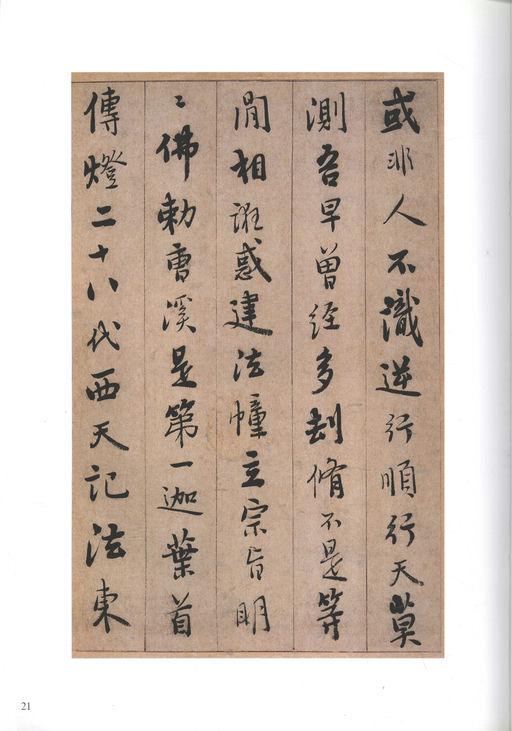 或非人不識逆行順行天莫
測吾早曽经多刧脩不是等
閒相誑惑建法幢立宗旨明
〻佛勅曹溪是第一迦葉首
傳燈二十八代西天記法東
21